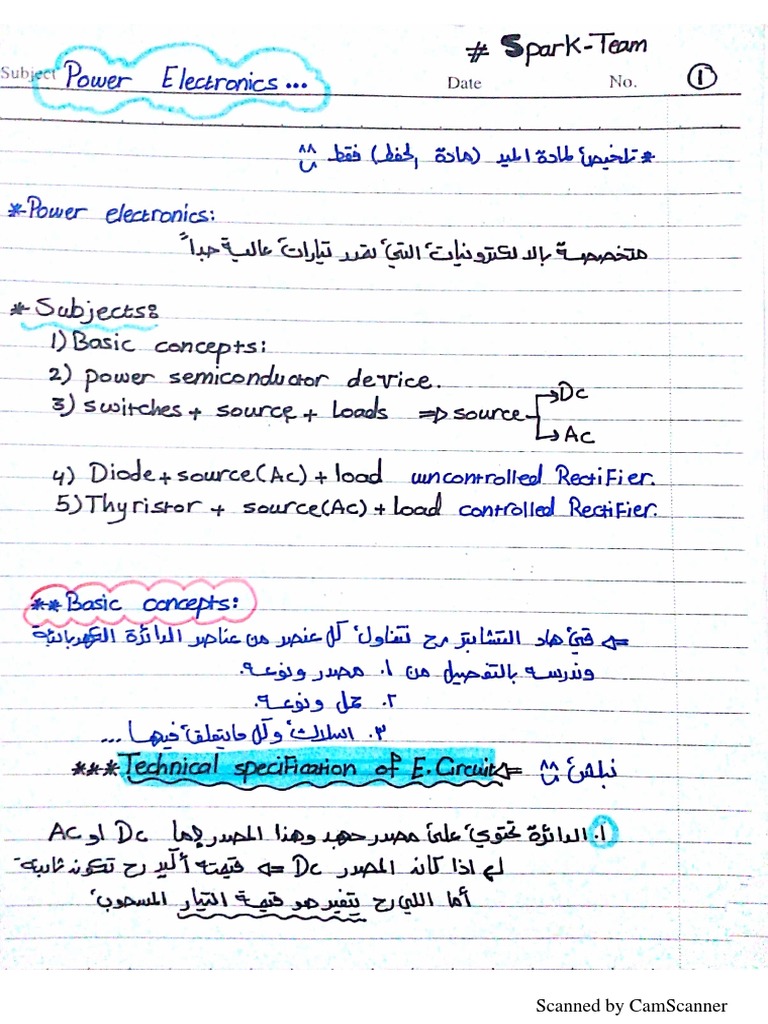 # Spark-Team
Subject Power Electronics... Date No. 1
* تلخيص لمادة الميد (مادة الحفظ) فقط ^^
*Power electronics:
متخصصة بالالكترونيات التي تقدر تيارات عالية جداً
* Subjects:
1) Basic concepts:
2) power semiconductor device.
3) switches + source + Loads ⇒ source → Dc
→ Ac
4) Diode + source (Ac) + load uncontrolled Rectifier.
5) Thyristor + source (Ac) + Load controlled Rectifier.
** Basic concepts:
⇐ في هاد التشابتر رح نتناول كل عنصر من عناصر الدائرة الكهربائية
وندرسه بالتفصيل من ١. مصدر ونوعه.
٢. حمل ونوعه.
٣. اسلاك وكل ما يتعلق فيها ...
*** Technical specification of E. Circuit ⇐ ^^ نبلش
أ. الدائرة تحتوي على مصدر جهد وهذا المصدر إما Dc او Ac
اذا كانه المصدر Dc ⇐ قيمته أكيد رح تكون ثابتة
أما اللي رح يتغير هو قيمة التيار المسحوب
Scanned by CamScanner